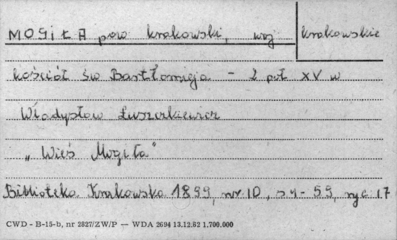 MOGIŁA pow krakowski, woj krakowskie
kościół św Bartłomieja - 2 poł XV w
Władysław Łuszczkiewicz
"Wieś Mogiła"
Biblioteka Krakowska 1899, nr 10, s 4-59, ryc 17
CWD - B-15-b, nr 2827/ZW/P — WDA 2694 13.12.82 1.700.000